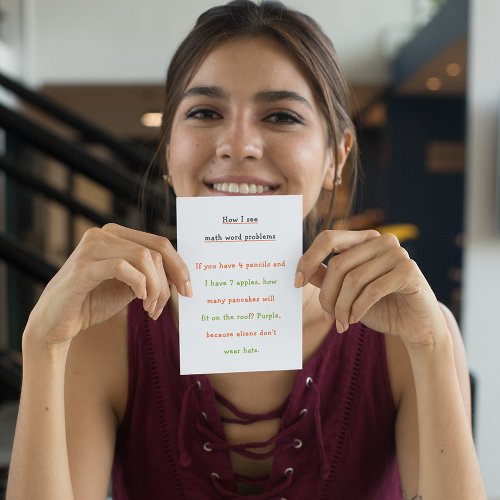 How I see
math word problems
If you have 4 pencils and
I have 7 apples, how
many pancakes will
fit on the roof? Purple,
because aliens don't
wear hats.